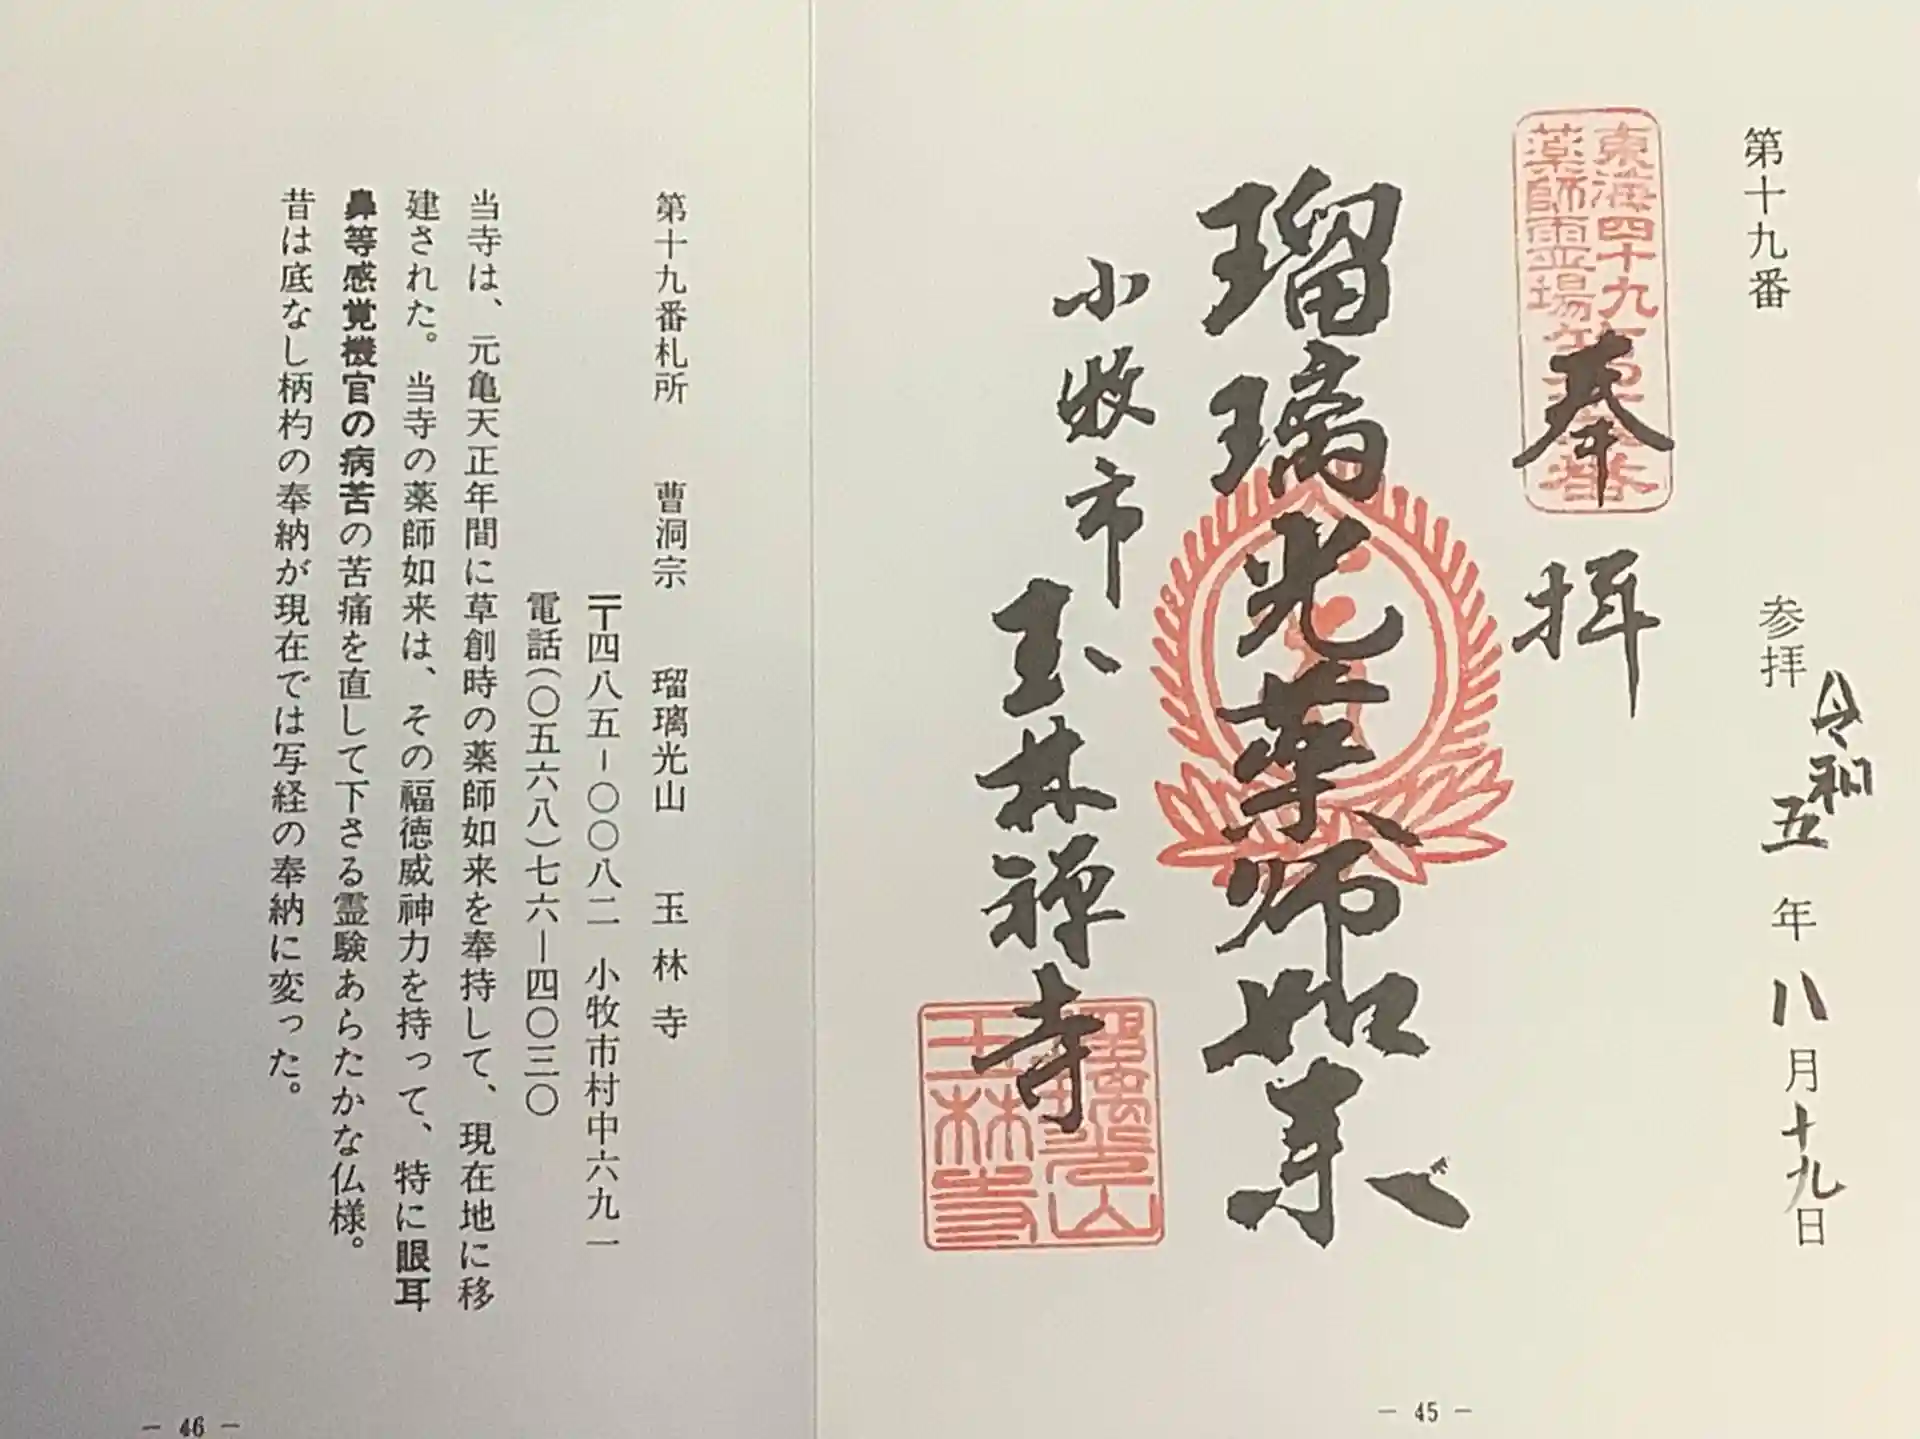 第十九番
参拝 令和五年八月十九日
東海四十九
薬師霊場
番
奉拝
瑠璃光薬師如来
小牧市
玉林禅寺
瑠璃光山
玉林寺
− 45 −
第十九番札所 曹洞宗 瑠璃光山 玉林寺
〒四八五−〇〇八二 小牧市村中六九一
電話(〇五六八)七六−四〇三〇
当寺は、元亀天正年間に草創時の薬師如来を奉持して、現在地に移
建された。当寺の薬師如来は、その福徳威神力を持って、特に眼耳
鼻等感覚機官の病苦の苦痛を直して下さる霊験あらたかな仏様。
昔は底なし柄杓の奉納が現在では写経の奉納に変った。
− 46 −